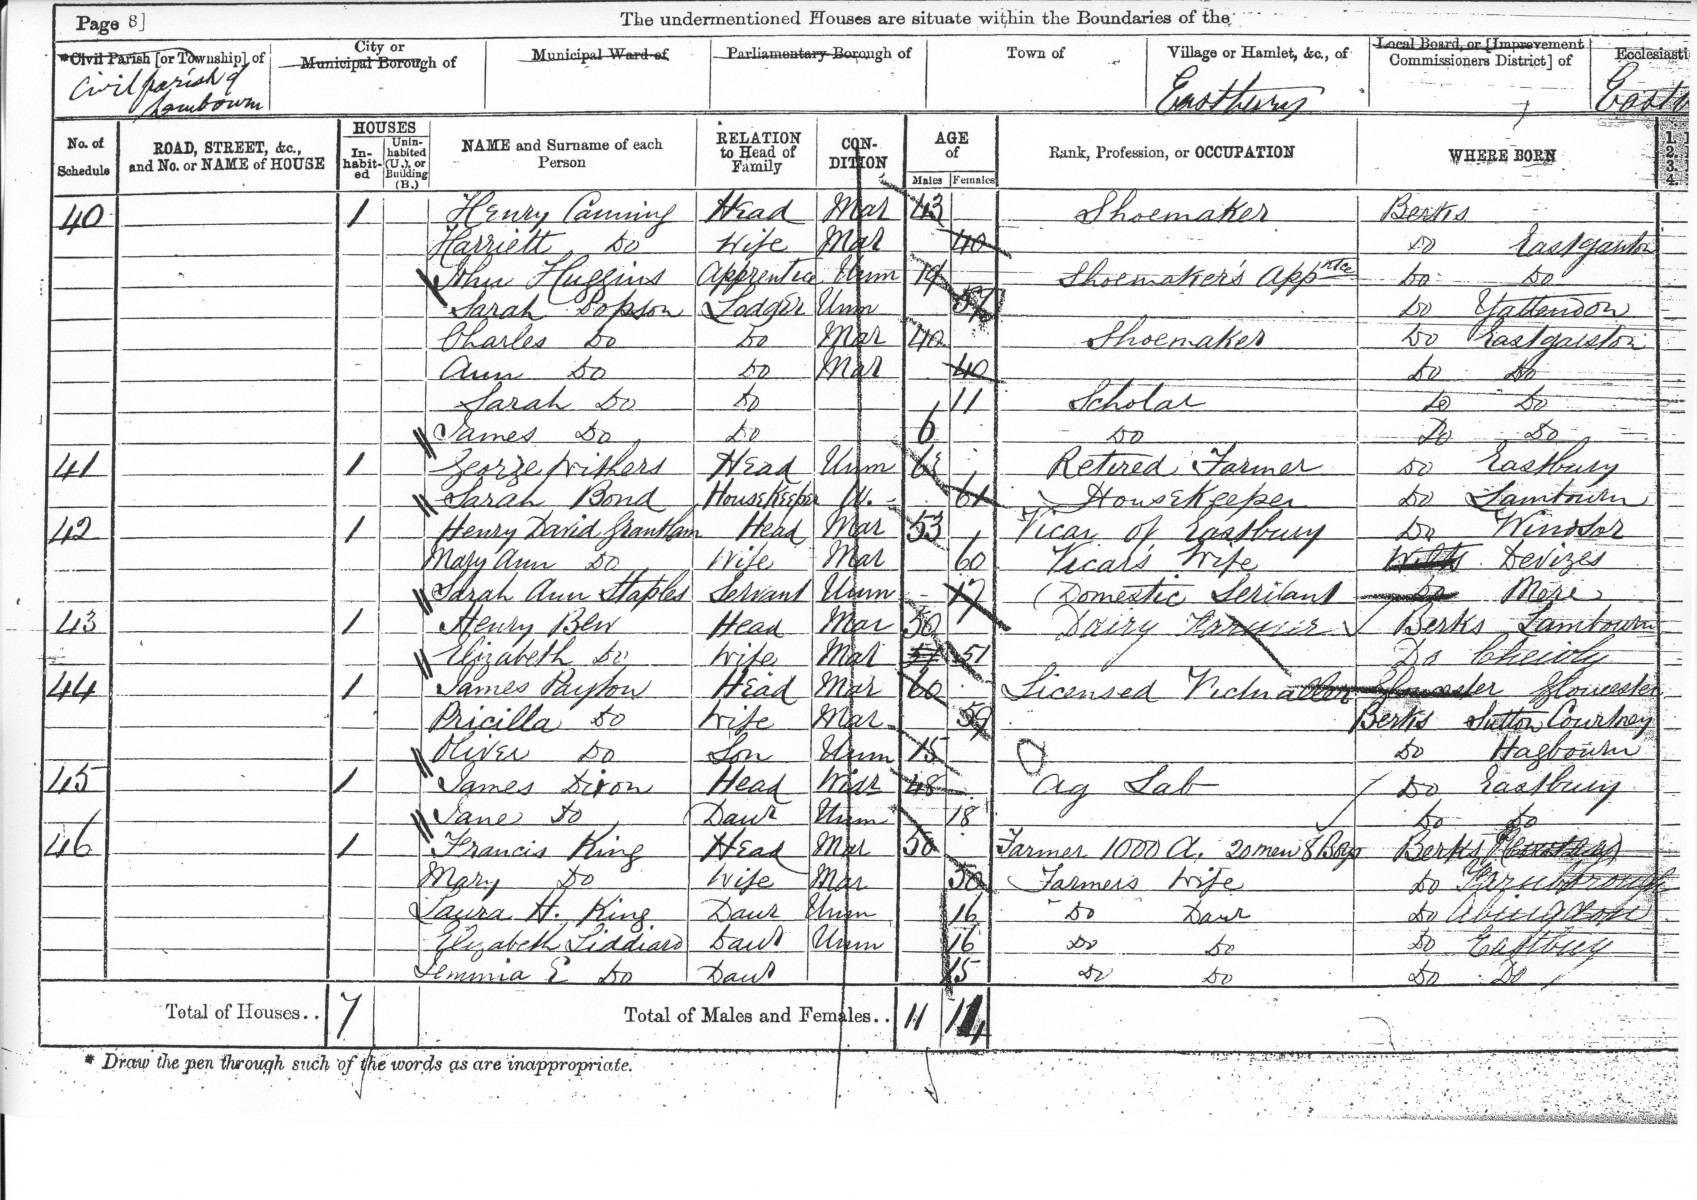 Page 8] The undermentioned Houses are situate within the Boundaries of the
*Civil Parish [or Township] of City or Municipal Borough of Municipal Ward of Parliamentary Borough of Town of Village or Hamlet, &c., of Local Board, or [Improvement Commissioners District] of Ecclesiasti
Civil parish of Lambourn Eastbury Eastb
No. of Schedule ROAD, STREET, &c., and No. or NAME of HOUSE HOUSES In-habit-ed Unin-habited (U.), or Building (B.) NAME and Surname of each Person RELATION to Head of Family CON-DITION AGE of Males Females Rank, Profession, or OCCUPATION WHERE BORN 1. 2. 3. 4.
40 1 Henry Canning Head Mar 43 Shoemaker Berks
Harriett Do Wife Mar 40 Do Eastgarston
John Huggins Apprentice Unm 19 Shoemaker's Apprtce Do Do
Sarah Popson Lodger Unm 57 Do Yattendon
Charles Do Do Mar 40 Shoemaker Do Eastgarston
Ann Do Do Mar 40 Do Do
Sarah Do Do 11 Scholar Do Do
James Do Do 6 Do Do Do
41 1 George Withers Head Unm Retired Farmer Do Eastbury
Sarah Bond HouseKeeper W. 61 HouseKeeper Do Lambourn
42 1 Henry David Grantham Head Mar 53 Vicar of Eastbury Do Windsor
Mary Ann Do Wife Mar 60 Vicar's Wife Wilts Devizes
Sarah Ann Staples Servant Unm 17 Domestic Servant Do Mere
43 1 Henry Bew Head Mar 50 Dairy Farmer Berks Lambourn
Elizabeth Do Wife Mar 51 51 Do Chievly
44 1 James Payton Head Mar 60 Licensed Victualler Gloucester Gloucester
Pricilla Do Wife Mar 59 Berks Sutton Courtney
Oliver Do Son Unm 15 Do Hagbourn
45 1 James Dixon Head Widr 48 Ag Lab Do Eastbury
Jane Do Daur Unm 18 Do Do
46 1 Francis King Head Mar 50 Farmer 1000 A. 20 men 8 Boys Berks
Mary Do Wife Mar 50 Farmers Wife Do Farnborough
Laura H. King Daur Unm 16 Do Daur Do Abingdon
Elizabeth Liddiard Daur Unm 16 Do Do Do Eastbury
Jemmia E Do Daur 15 Do Do Do Do
Total of Houses.. 7 Total of Males and Females.. 11 14
* Draw the pen through such of the words as are inappropriate.